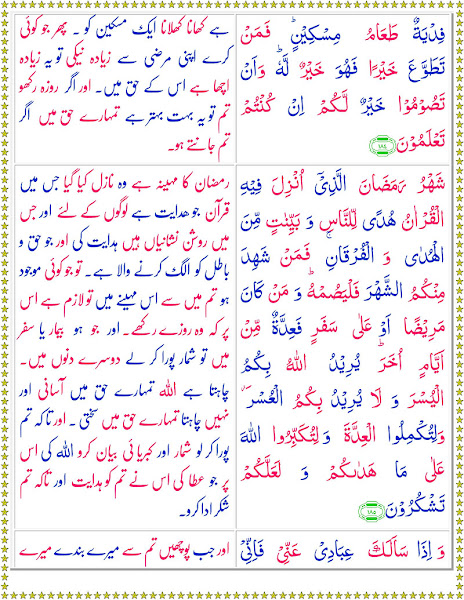 فِدْيَةٌ طَعَامُ مِسْكِيْنٍؕ فَمَنْ
تَطَوَّعَ خَيْرًا فَهُوَ خَيْرٌ لَّهٗؕ وَاَنْ
تَصُوْمُوْا خَيْرٌ لَّكُمْ اِنْ كُنْتُمْ
تَعْلَمُوْنَ ﴿۱۸۴﴾
ہے کھانا کھلانا ایک مسکین کو۔ پھر جو کوئی
کرے اپنی مرضی سے زیادہ نیکی تو یہ زیادہ
اچھا ہے اس کے حق میں۔ اور اگر روزہ رکھو
تم تو یہ بہت بہتر ہے تمہارے حق میں اگر
تم جانتے ہو۔
شَهْرُ رَمَضَانَ الَّذِیْۤ اُنْزِلَ فِیْهِ
الْقُرْاٰنُ هُدًی لِّلنَّاسِ وَ بَیِّنٰتٍ مِّنَ
الْهُدٰی وَ الْفُرْقَانِۚ فَمَنْ شَهِدَ
مِنْكُمُ الشَّهْرَ فَلْیَصُمْهُؕ وَ مَنْ كَانَ
مَرِیْضًا اَوْ عَلٰی سَفَرٍ فَعِدَّةٌ مِّنْ
اَیَّامٍ اُخَرَؕ یُرِیْدُ اللّٰهُ بِكُمُ
الْیُسْرَ وَ لَا یُرِیْدُ بِكُمُ الْعُسْرَ
وَلِتُكْمِلُوا الْعِدَّةَ وَلِتُكَبِّرُوا اللّٰهَ
عَلٰی مَا هَدٰىكُمْ وَ لَعَلَّكُمْ
تَشْكُرُوْنَ ﴿۱۸۵﴾
رمضان کا مہینہ ہے وہ نازل کیا گیا جس میں
قرآن جو ھدایت ہے لوگوں کے لئے اور جس
میں روشن نشانیاں ہیں ہدایت کی اور جو حق و
باطل کو الگ کرنے والا ہے۔ تو جو کوئی موجود
ہو تم میں سے اس مہینے میں تو لازم ہے اس
پر کہ وہ روزے رکھے۔ اور جو ہو بیمار یا سفر
میں تو شمار پورا کر لے دوسرے دنوں میں۔
چاہتا ہے اللہ تمہارے حق میں آسانی اور
نہیں چاہتا تمہارے حق میں سختی۔ اور تاکہ تم
پورا کر لو شمار اور کبریائی بیان کرو اللہ کی اس
پر جو عطا کی اس نے تم کو ہدایت اور تاکہ تم
شکر ادا کرو۔
وَ اِذَا سَاَلَكَ عِبَادِیْ عَنِّیْ فَاِنِّیْ
اور جب پوچھیں تم سے میرے بندے میرے